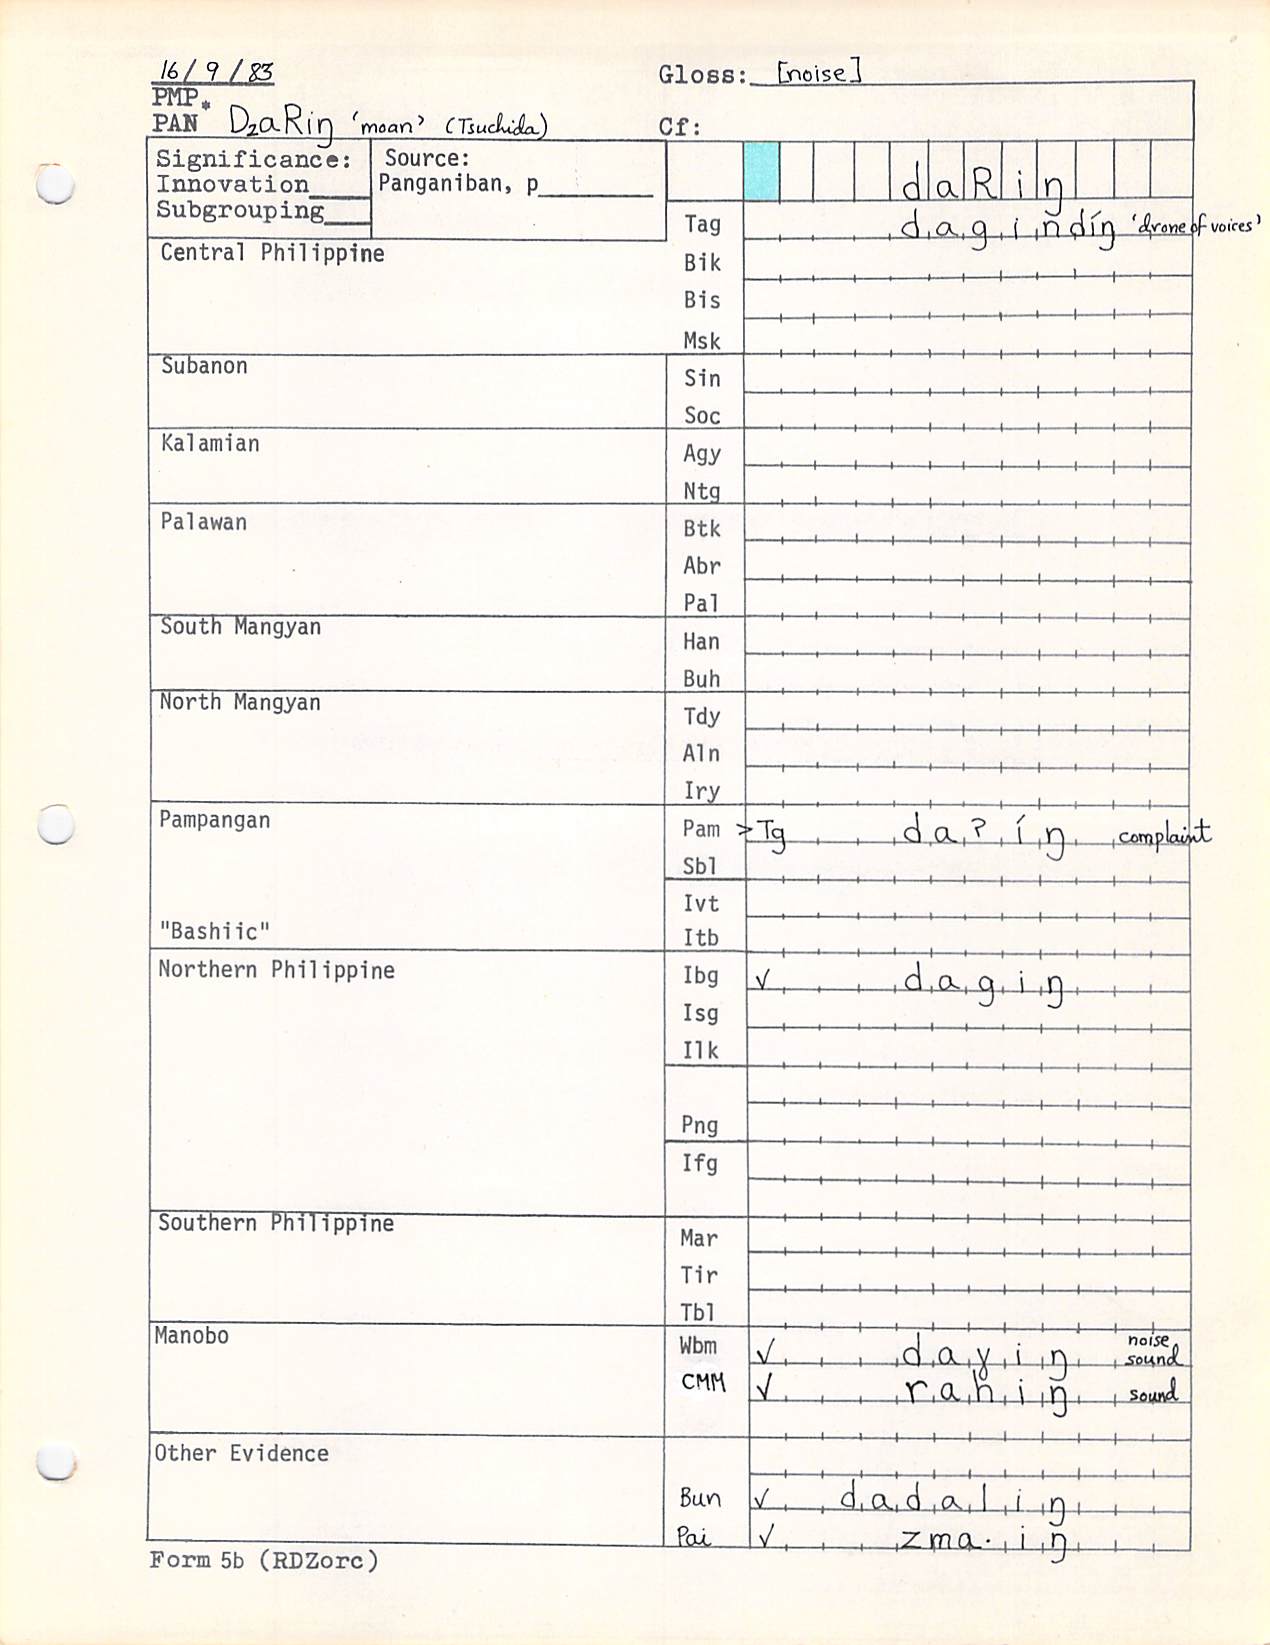 16/9/83
Gloss: [noise]
PMP
PAN * D₂aRiŋ 'moan' (Tsuchida)
Cf:
Significance:
Innovation
Subgrouping
Source:
Panganiban, p
daRiŋ
Tag dagindíŋ 'drone of voices'
Central Philippine
Bik
Bis
Msk
Subanon
Sin
Soc
Kalamian
Agy
Ntg
Palawan
Btk
Abr
Pal
South Mangyan
Han
Buh
North Mangyan
Tdy
Aln
Iry
Pampangan
Pam >Tg daʔíŋ complaint
Sbl
Ivt
"Bashiic"
Itb
Northern Philippine
Ibg ✓ dagiŋ
Isg
Ilk
Png
Ifg
Southern Philippine
Mar
Tir
Tbl
Manobo
Wbm ✓ daɣiŋ noise, sound
CMM ✓ rahiŋ sound
Other Evidence
Bun ✓ dadaliŋ
Pai ✓ zma·iŋ
Form 5b (RDZorc)